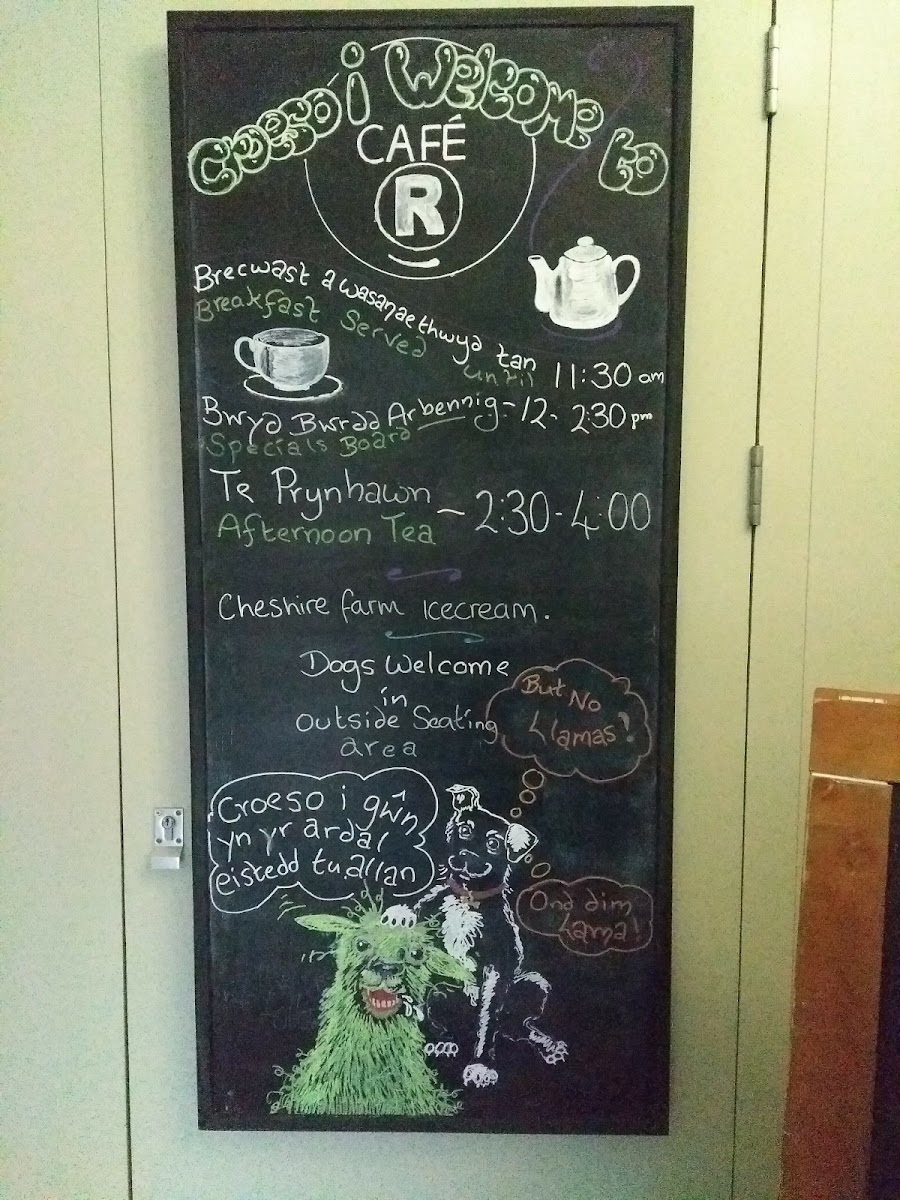 Croeso i Welcome to
CAFÉ
R
Brecwast a wasanaethwyd tan
Breakfast Served until 11:30 am
Bwyd Bwrdd Arbennig - 12 - 2:30 pm
Specials Board
Te Prynhawn
Afternoon Tea ~ 2:30 - 4:00
Cheshire farm Icecream.
Dogs Welcome
in
outside Seating
area
But No
Llamas!
Croeso i gŵn
yn yr ardal
eistedd tu allan
Ond dim
Lama!